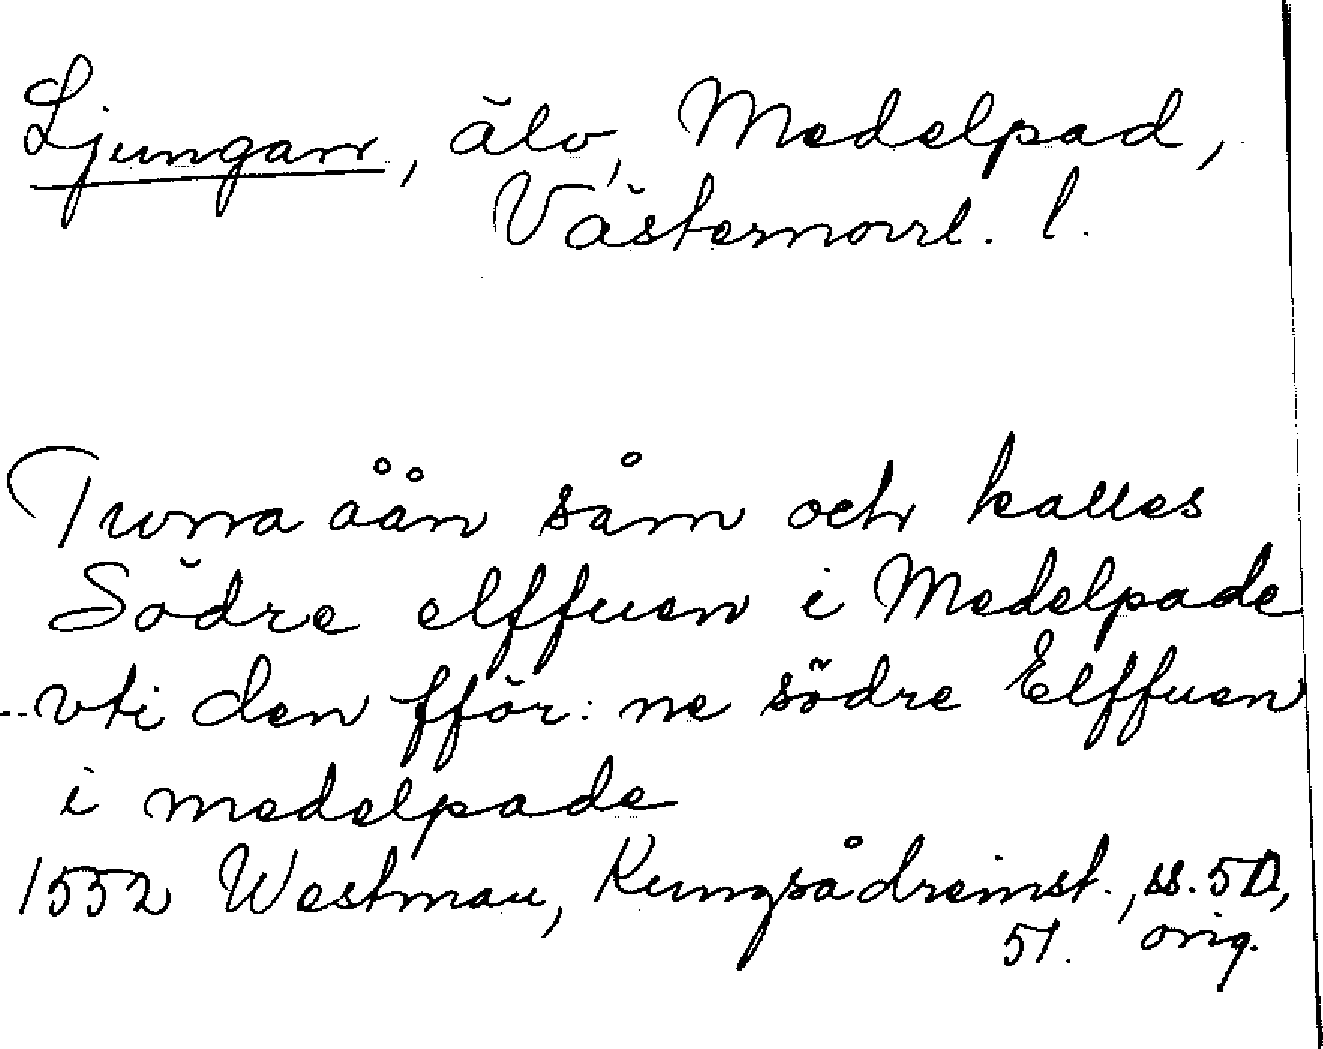 Ljungan, älv, Medelpad,
Västernorrl. l.
Turra åån såm och kalles
Södre elffuen i Medelpade
--vti den fför:ne södre Elffuen
i medelpade
1552 Westman, Kungsådreinst., ss. 50,
51. orig.